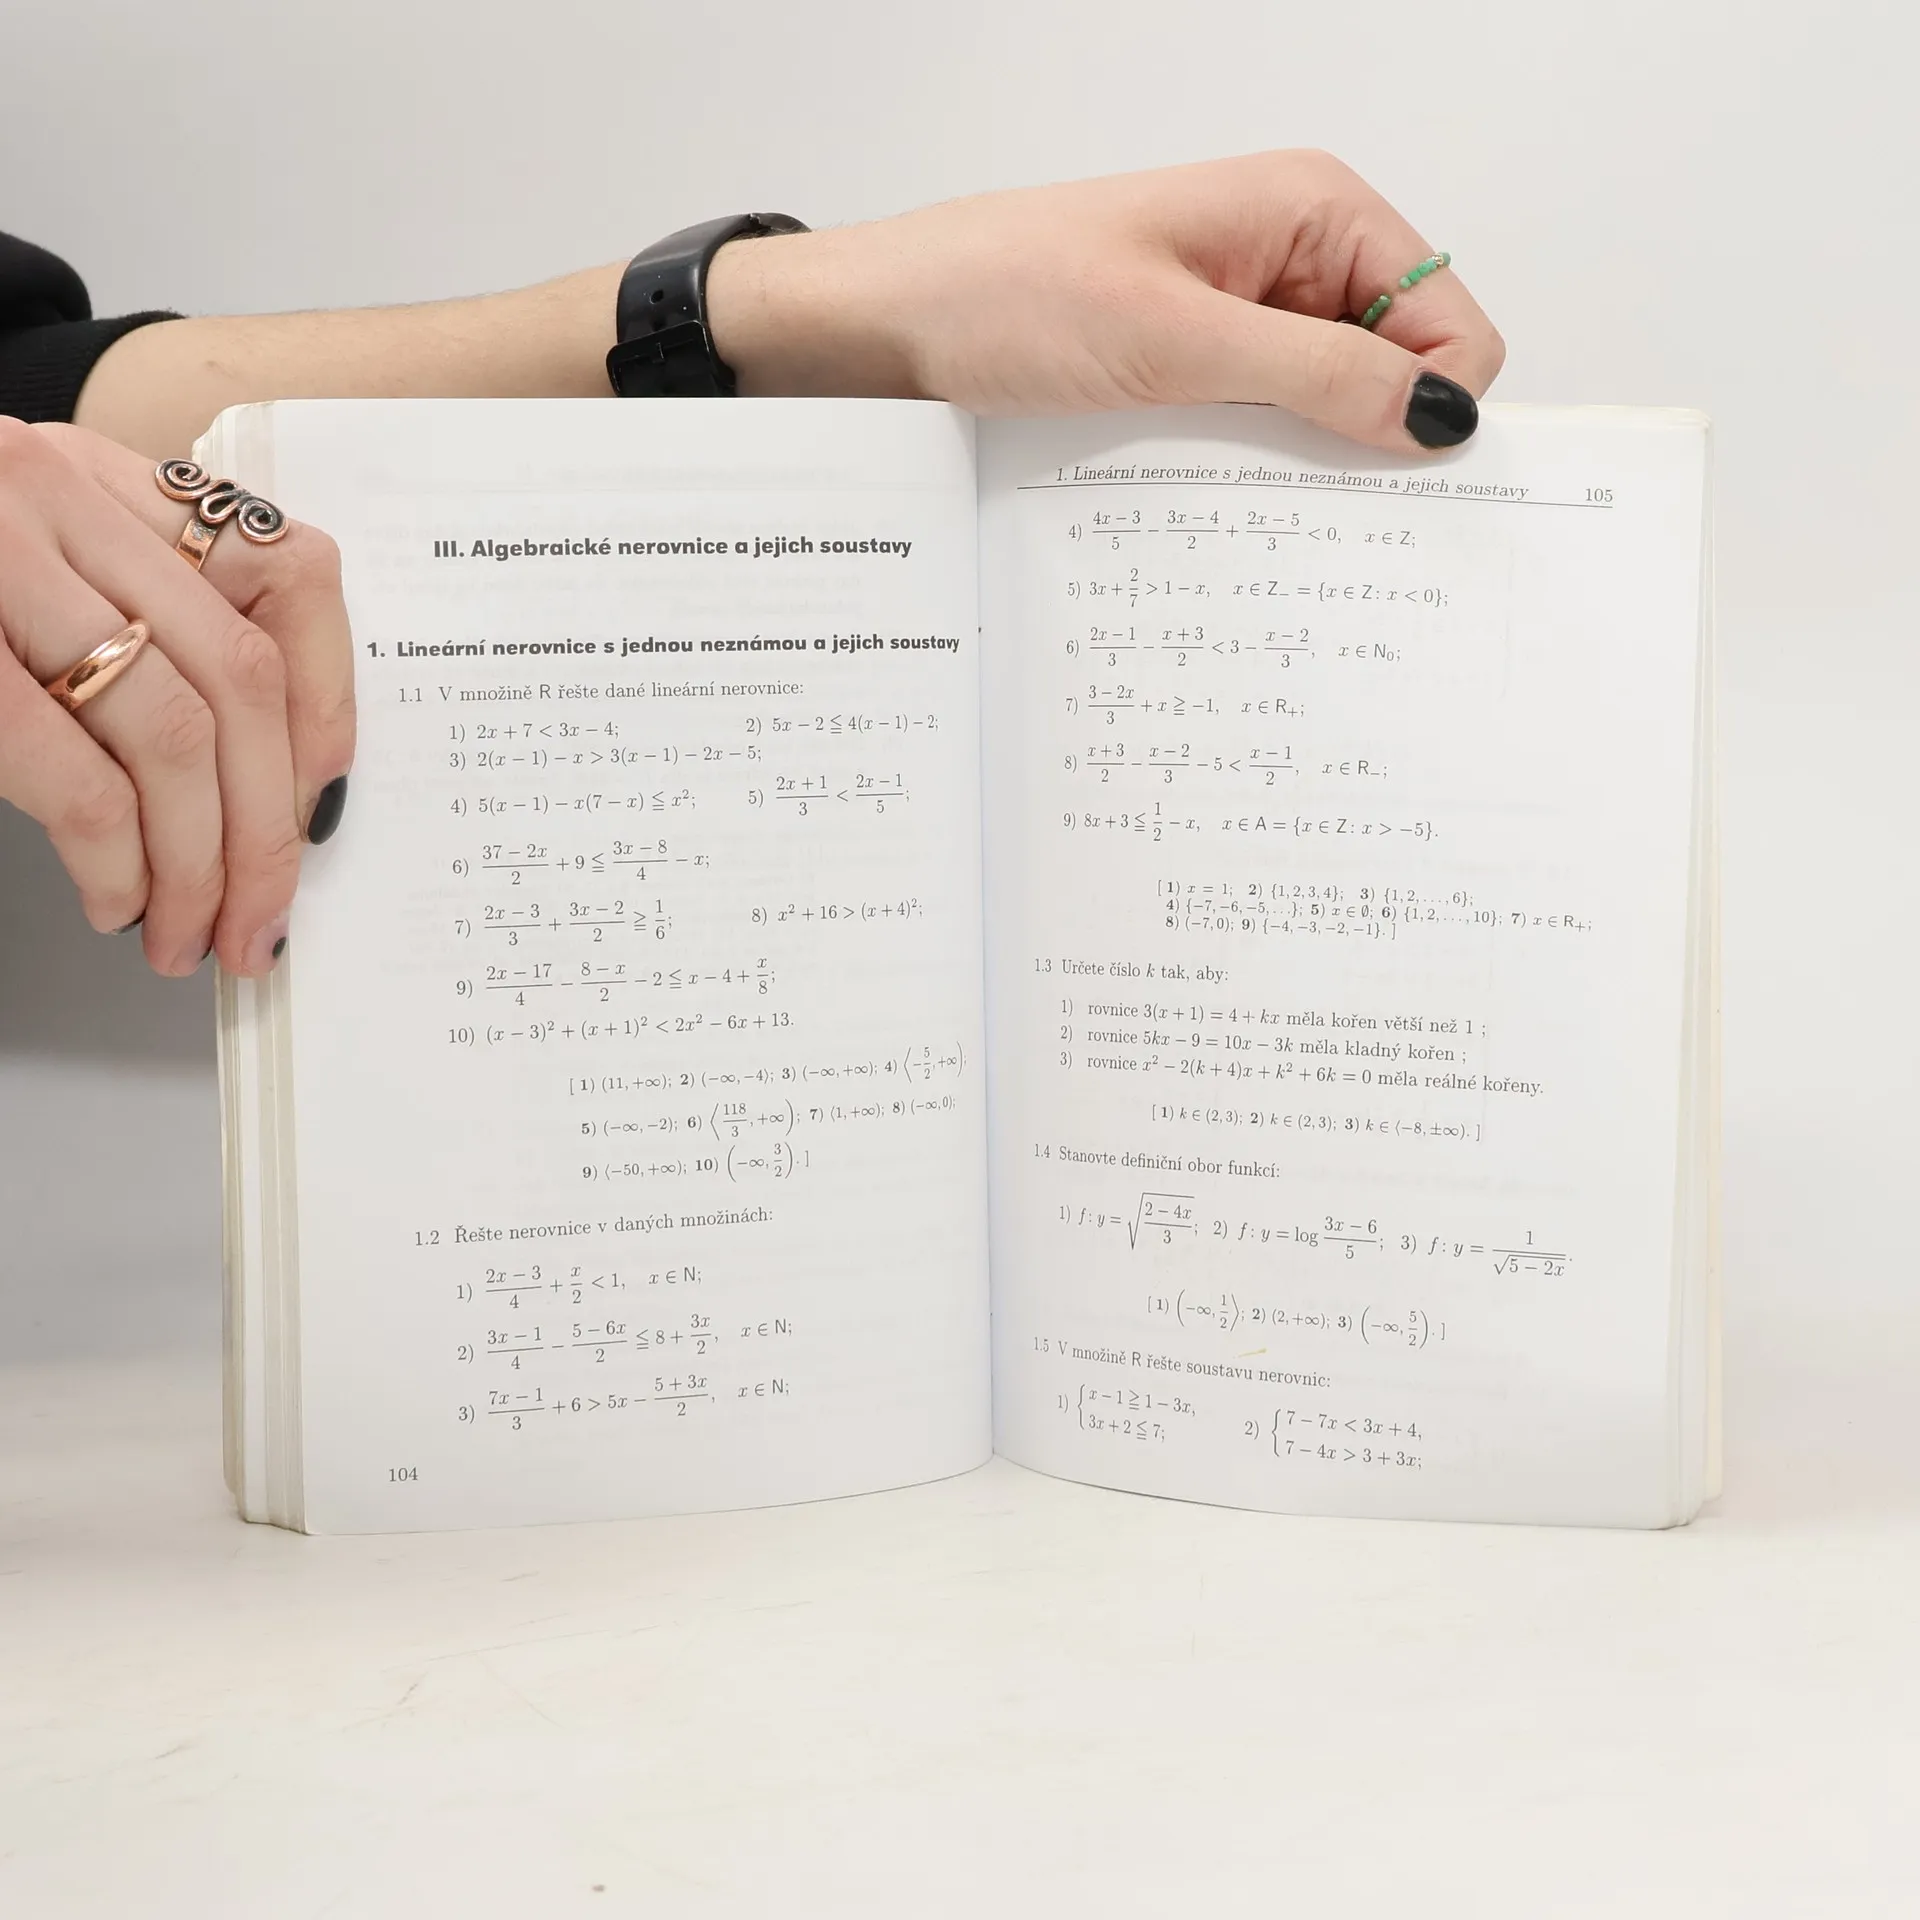 III. Algebraické nerovnice a jejich soustavy
1. Lineární nerovnice s jednou neznámou a jejich soustavy
1.1 V množině R řešte dané lineární nerovnice:
1) 2x + 7 < 3x − 4; 2) 5x − 2 ≦ 4(x − 1) − 2;
3) 2(x − 1) − x > 3(x − 1) − 2x − 5;
4) 5(x − 1) − x(7 − x) ≦ x²; 5) (2x + 1)/3 < (2x − 1)/5;
6) (37 − 2x)/2 + 9 ≦ (3x − 8)/4 − x;
7) (2x − 3)/3 + (3x − 2)/2 ≧ 1/6; 8) x² + 16 > (x + 4)²;
9) (2x − 17)/4 − (8 − x)/2 − 2 ≦ x − 4 + x/8;
10) (x − 3)² + (x + 1)² < 2x² − 6x + 13.
[ 1) (11, +∞); 2) (−∞, −4⟩; 3) (−∞, +∞); 4) ⟨−5/2, +∞);
5) (−∞, −2); 6) ⟨118/3, +∞); 7) ⟨1, +∞); 8) (−∞, 0);
9) ⟨−50, +∞); 10) (−∞, 3/2). ]
1.2 Řešte nerovnice v daných množinách:
1) (2x − 3)/4 + x/2 < 1, x ∈ N;
2) (3x − 1)/4 − (5 − 6x)/2 ≦ 8 + 3x/2, x ∈ N;
3) (7x − 1)/3 + 6 > 5x − (5 + 3x)/2, x ∈ N;
104
1. Lineární nerovnice s jednou neznámou a jejich soustavy 105
4) (4x − 3)/5 − (3x − 4)/2 + (2x − 5)/3 < 0, x ∈ Z;
5) 3x + 2/7 > 1 − x, x ∈ Z₋ = {x ∈ Z: x < 0};
6) (2x − 1)/3 − (x + 3)/2 < 3 − (x − 2)/3, x ∈ N₀;
7) (3 − 2x)/3 + x ≧ −1, x ∈ R₊;
8) (x + 3)/2 − (x − 2)/3 − 5 < (x − 1)/2, x ∈ R₋;
9) 8x + 3 ≦ 1/2 − x, x ∈ A = {x ∈ Z: x > −5}.
[ 1) x = 1; 2) {1, 2, 3, 4}; 3) {1, 2, . . . , 6};
4) {−7, −6, −5, . . .}; 5) x ∈ ∅; 6) {1, 2, . . . , 10}; 7) x ∈ R₊;
8) (−7, 0); 9) {−4, −3, −2, −1}. ]
1.3 Určete číslo k tak, aby:
1) rovnice 3(x + 1) = 4 + kx měla kořen větší než 1 ;
2) rovnice 5kx − 9 = 10x − 3k měla kladný kořen ;
3) rovnice x² − 2(k + 4)x + k² + 6k = 0 měla reálné kořeny.
[ 1) k ∈ (2, 3); 2) k ∈ (2, 3); 3) k ∈ ⟨−8, ±∞). ]
1.4 Stanovte definiční obor funkcí:
1) f: y = √((2 − 4x)/3); 2) f: y = log (3x − 6)/5; 3) f: y = 1/√(5 − 2x).
[ 1) (−∞, 1/2⟩; 2) (2, +∞); 3) (−∞, 5/2). ]
1.5 V množině R řešte soustavu nerovnic:
1) { x − 1 ≧ 1 − 3x, 2) { 7 − 7x < 3x + 4,
3x + 2 ≦ 7; 7 − 4x > 3 + 3x;